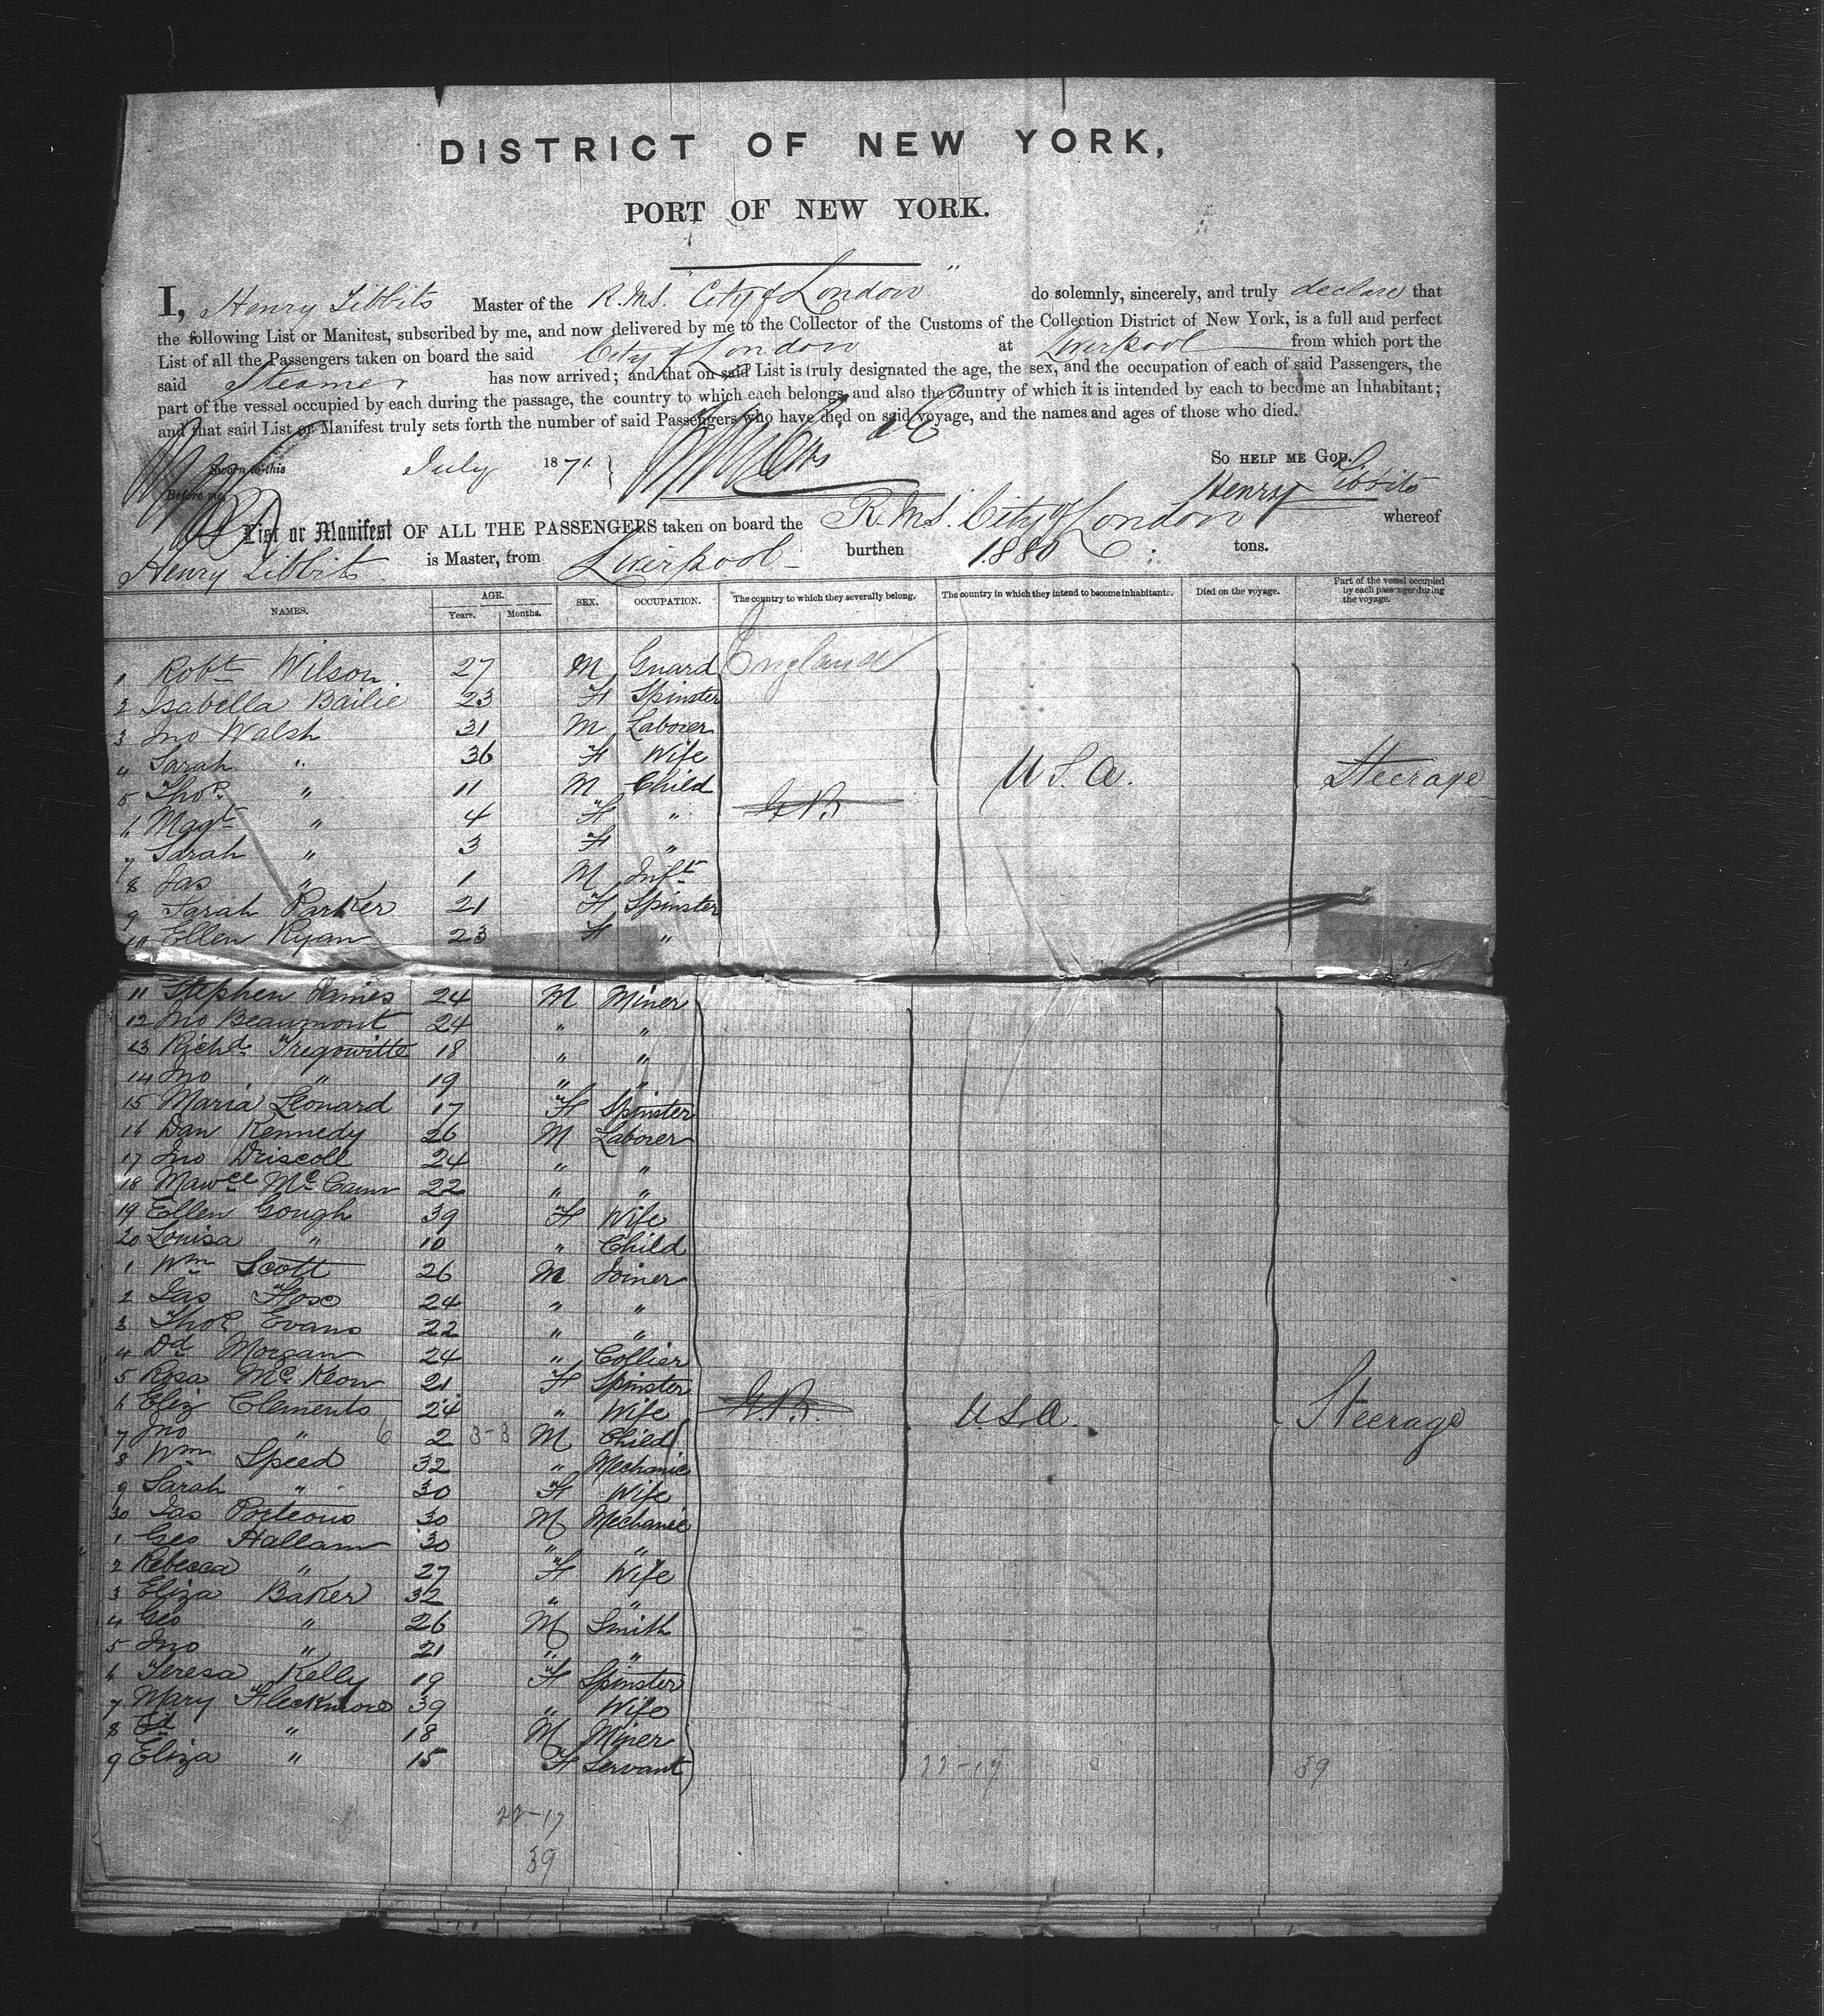 DISTRICT OF NEW YORK,
PORT OF NEW YORK.
I, Henry Tibbits Master of the R.M.S. "City of London" do solemnly, sincerely, and truly declare that
the following List or Manifest, subscribed by me, and now delivered by me to the Collector of the Customs of the Collection District of New York, is a full and perfect
List of all the Passengers taken on board the said City of London at Liverpool from which port the
said Steamer has now arrived; and that on said List is truly designated the age, the sex, and the occupation of each of said Passengers, the
part of the vessel occupied by each during the passage, the country to which each belongs, and also the country of which it is intended by each to become an Inhabitant;
and that said List or Manifest truly sets forth the number of said Passengers who have died on said voyage, and the names and ages of those who died.
Sworn to this July 1871. So HELP ME GOD.
Before me, Henry Tibbits
List or Manifest OF ALL THE PASSENGERS taken on board the R.M.S. City of London whereof
Henry Tibbits is Master, from Liverpool burthen 1880 tons.
NAMES. AGE. Years. Months. SEX. OCCUPATION. The country to which they severally belong. The country in which they intend to become inhabitants. Died on the voyage. Part of the vessel occupied by each passenger during the voyage.
1 Robt Wilson 27 M Guard England
2 Isabella Bailie 23 F Spinster
3 Jno Walsh 31 M Laborer
4 Sarah " 36 F Wife
5 Thos " 11 M Child G.B. U.S.A. Steerage
6 Magt " 4 F "
7 Sarah " 3 F "
8 Jas " 1 M Inft
9 Sarah Parker 21 F Spinster
10 Ellen Ryan 23 F "
11 Stephen James 24 M Miner
12 Jno Beaumont 24 " "
13 Richd Tregowitte 18 " "
14 Jno " 19 " "
15 Maria Leonard 17 F Spinster
16 Dan Kennedy 26 M Laborer
17 Jno Driscoll 24 " "
18 Mawce McCann 22 " "
19 Ellen Gough 39 F Wife
20 Louisa " 10 " Child
1 Wm Scott 26 M Joiner
2 Jas Fose 24 " "
3 Thos Evans 22 " "
4 Dd Morgan 24 " Collier
5 Rosa McKeon 21 F Spinster
6 Eliz Clements 24 " Wife G.B. U.S.A. Steerage
7 Jno " 6 2 3-3 M Child
8 Wm Speed 32 " Mechanic
9 Sarah " 30 F Wife
30 Jas Porteous 30 M Mechanic
1 Geo Hallam 30 " "
2 Rebecca " 27 F Wife
3 Eliza Baker 32 " "
4 Geo " 26 M Smith
5 Jno " 21 " "
6 Teresa Kelly 19 F Spinster
7 Mary Fleckmore 39 " Wife
8 Ed " 18 M Miner
9 Eliza " 15 F Servant 22-17 39
22-17
39